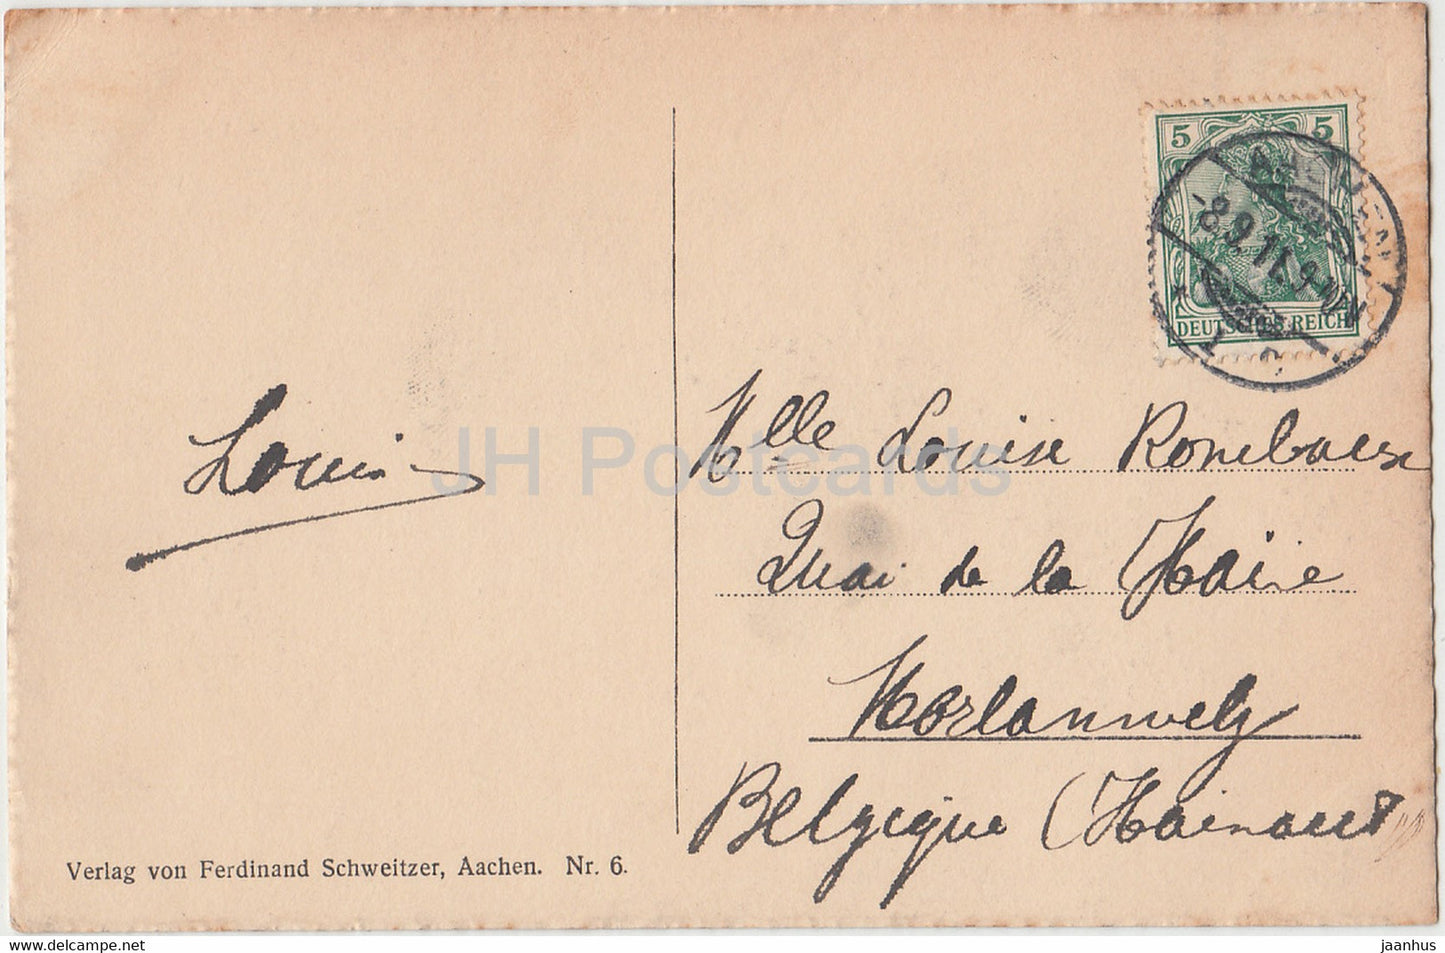 5 5
AACHEN
-8.9.11.9-10V
DEUTSCHES REICH
1
Louis
Mlle Louise Rombaux
Quai de la Haine
Morlanwelz
Belgique (Hainaut)
Verlag von Ferdinand Schweitzer, Aachen. Nr. 6.
JH Postcards
delcampe.net
jaanhus